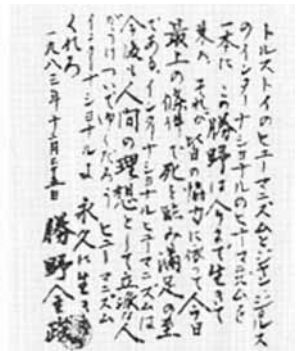 トルストイのヒューマニズムとジャン・ジョルス
のインターナショナルのヒューマニズムを
一本に この勝野は今まで生きて
来た、それが皆の協力に依って今日
最上の條件で死を臨み満足の至
である。インターナショナルヒューマニズムは
今後も人間の理想として立派な人
がうけついでゆくだろう ヒューマニズム
インターナショナルよ 永久に生き
くれろ
一九八三年十二月 五日 勝野金政